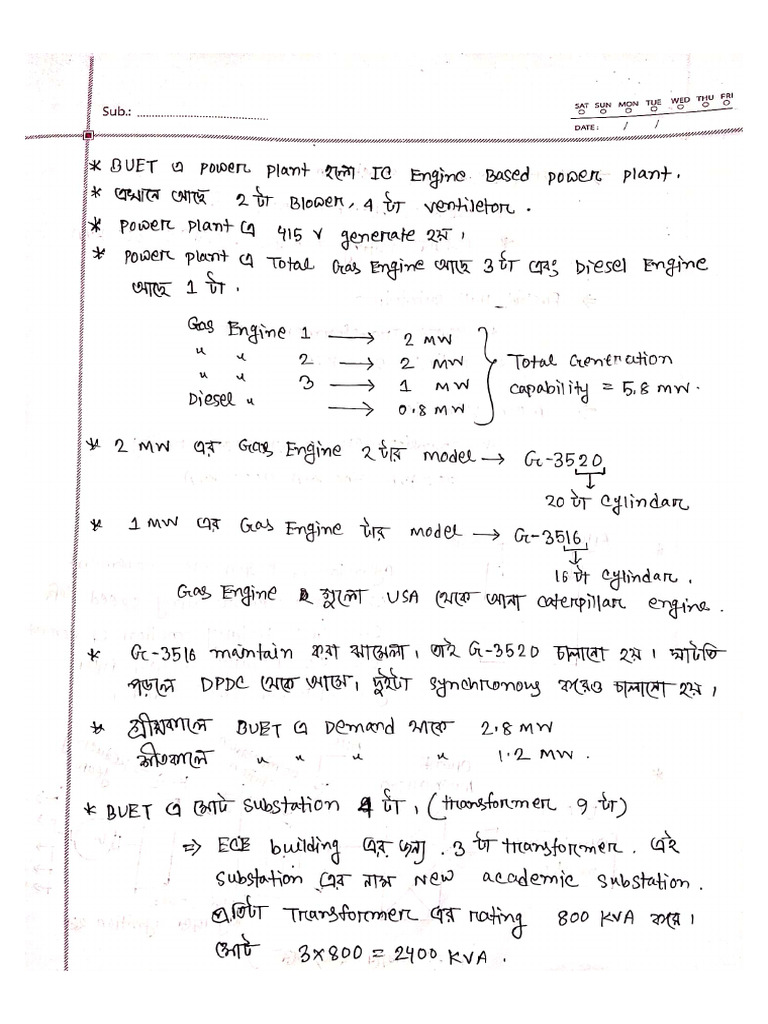 Sub.: ....................................
SAT SUN MON TUE WED THU FRI
DATE: / /
* BUET এ Power Plant হলো IC Engine Based power plant.
* এখানে আছে 2 টা Blower, 4 টা ventiletor.
* Power plant এ 415 V generate হয়।
* Power plant এ Total Gas Engine আছে 3 টা এবং Diesel Engine
আছে 1 টা.
Gas Engine 1 → 2 MW
" " 2 → 2 MW
" " 3 → 1 MW
Diesel " → 0.8 MW
Total Generation
capability = 5.8 MW.
* 2 MW এর Gas Engine 2 টার model → G-3520
↓
20 টা Cylindar
* 1 MW এর Gas Engine টার model → G-3516
↓
16 টা Cylindar.
Gas Engine গুলো USA থেকে আনা Caterpillar engine.
* G-3516 maintain করা ঝামেলা, তাই G-3520 চালানো হয়। ঘাটতি
পড়লে DPDC থেকে আসে। দুইটা Synchronous করেও চালানো হয়।
* গ্রীষ্মকালে BUET এ Demand থাকে 2.8 MW
শীতকালে " " " " 1.2 MW.
* BUET এ মোট Substation 4 টা, (transformer 9 টা)
⇒ ECE building এর জন্য 3 টা transformer. এই
Substation এর নাম New academic Substation.
প্রতিটা Transformer এর rating 800 KVA করে।
মোট 3×800 = 2400 KVA.